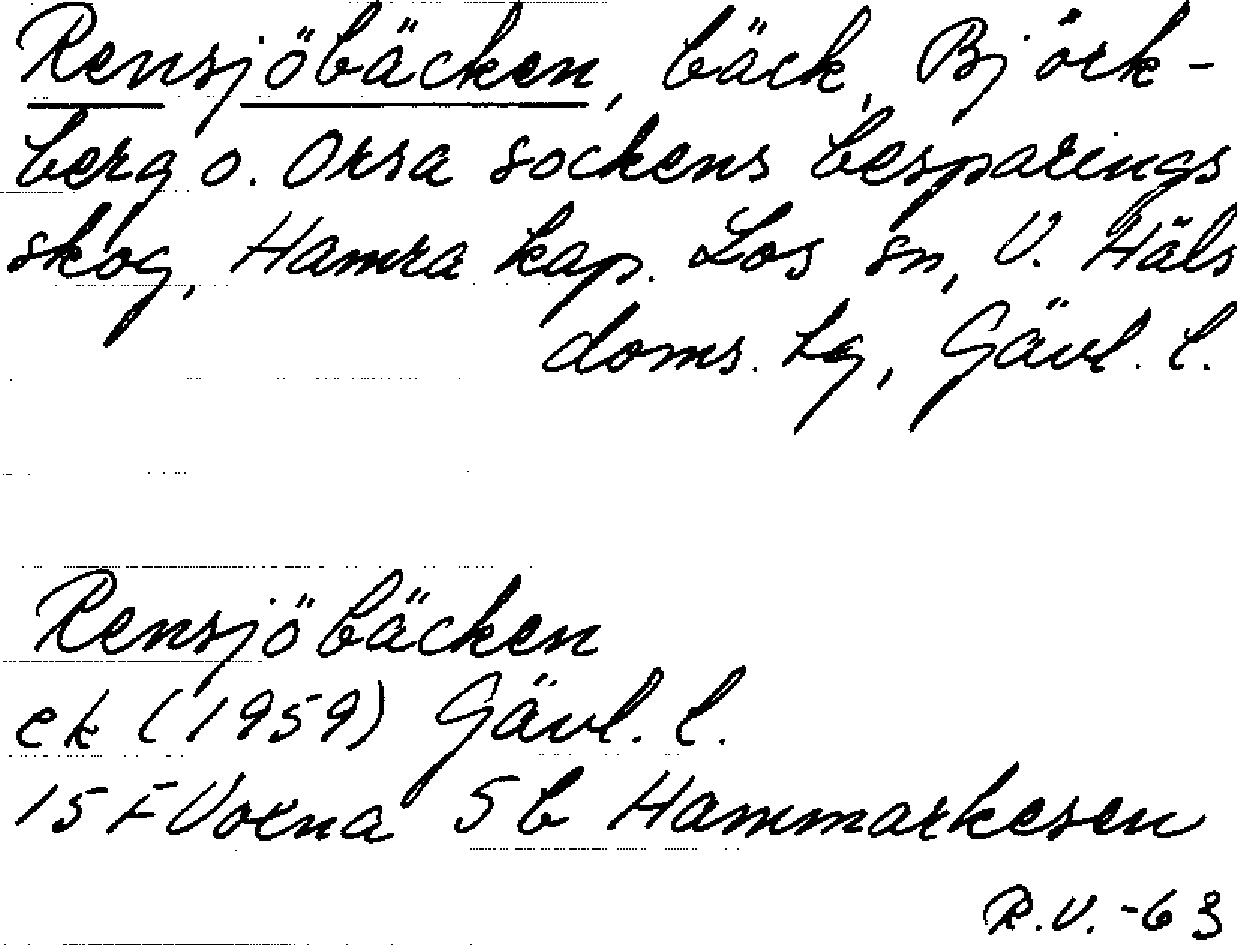 Rensjöbäcken, bäck, Björk-
berg o. Orsa sockens besparings
skog, Hamra kap. Los sn, V. Häls
doms. lg, Gävl. l.
Rensjöbäcken
ek (1959) Gävl. l.
15 F Voxna 5b Hammarkesen
R.V. -63